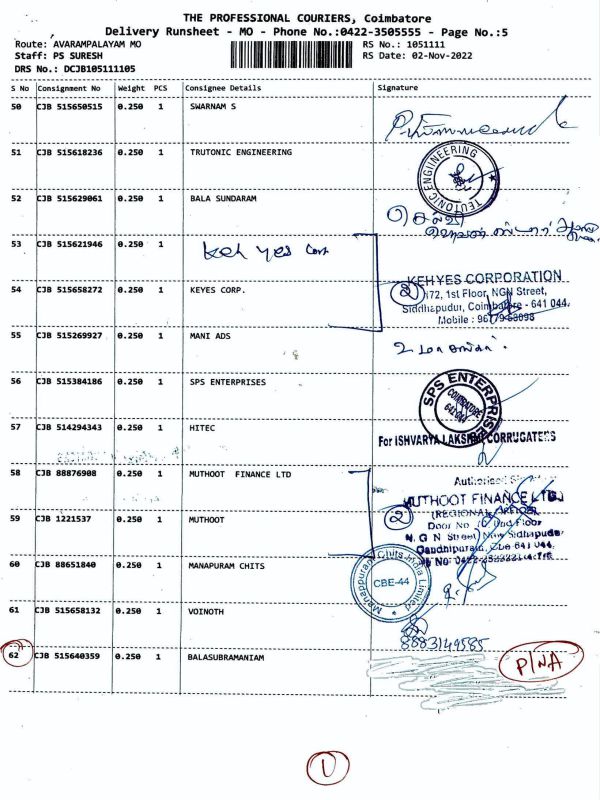 THE PROFESSIONAL COURIERS, Coimbatore
Delivery Runsheet - MO - Phone No.:0422-3505555 - Page No.:5
Route: AVARAMPALAYAM MO
RS No.: 1051111
Staff: PS SURESH
RS Date: 02-Nov-2022
DRS No.: DCJB105111105
S No Consignment No Weight PCS Consignee Details Signature
50 CJB 515650515 0.250 1 SWARNAM S
51 CJB 515618236 0.250 1 TRUTONIC ENGINEERING
TEUTONIC ENGINEERING
52 CJB 515629061 0.250 1 BALA SUNDARAM
53 CJB 515621946 0.250 1 Keh yes Corp
KEHYES CORPORATION
54 CJB 515658272 0.250 1 KEYES CORP.
2 172, 1st Floor, NGN Street,
Siddhapudur, Coimbatore - 641 044.
Mobile :
55 CJB 515269927 0.250 1 MANI ADS
56 CJB 515384186 0.250 1 SPS ENTERPRISES
SPS ENTERPRISES
COIMBATORE
57 CJB 514294343 0.250 1 HITEC
For ISHVARYA LAKSHMI CORRUGATERS
58 CJB 88876908 0.250 1 MUTHOOT FINANCE LTD
MUTHOOT FINANCE LTD
(REGIONAL OFFICE)
59 CJB 1221537 0.250 1 MUTHOOT
2
N. G N Street, New Sidhapudur
Gandhipuram, Cbe 641 044.
60 CJB 88651840 0.250 1 MANAPURAM CHITS
Manappuram Chits India Limited
CBE-44
61 CJB 515658132 0.250 1 VOINOTH
8883149585
62 CJB 515640359 0.250 1 BALASUBRAMANIAM
P/NA
1